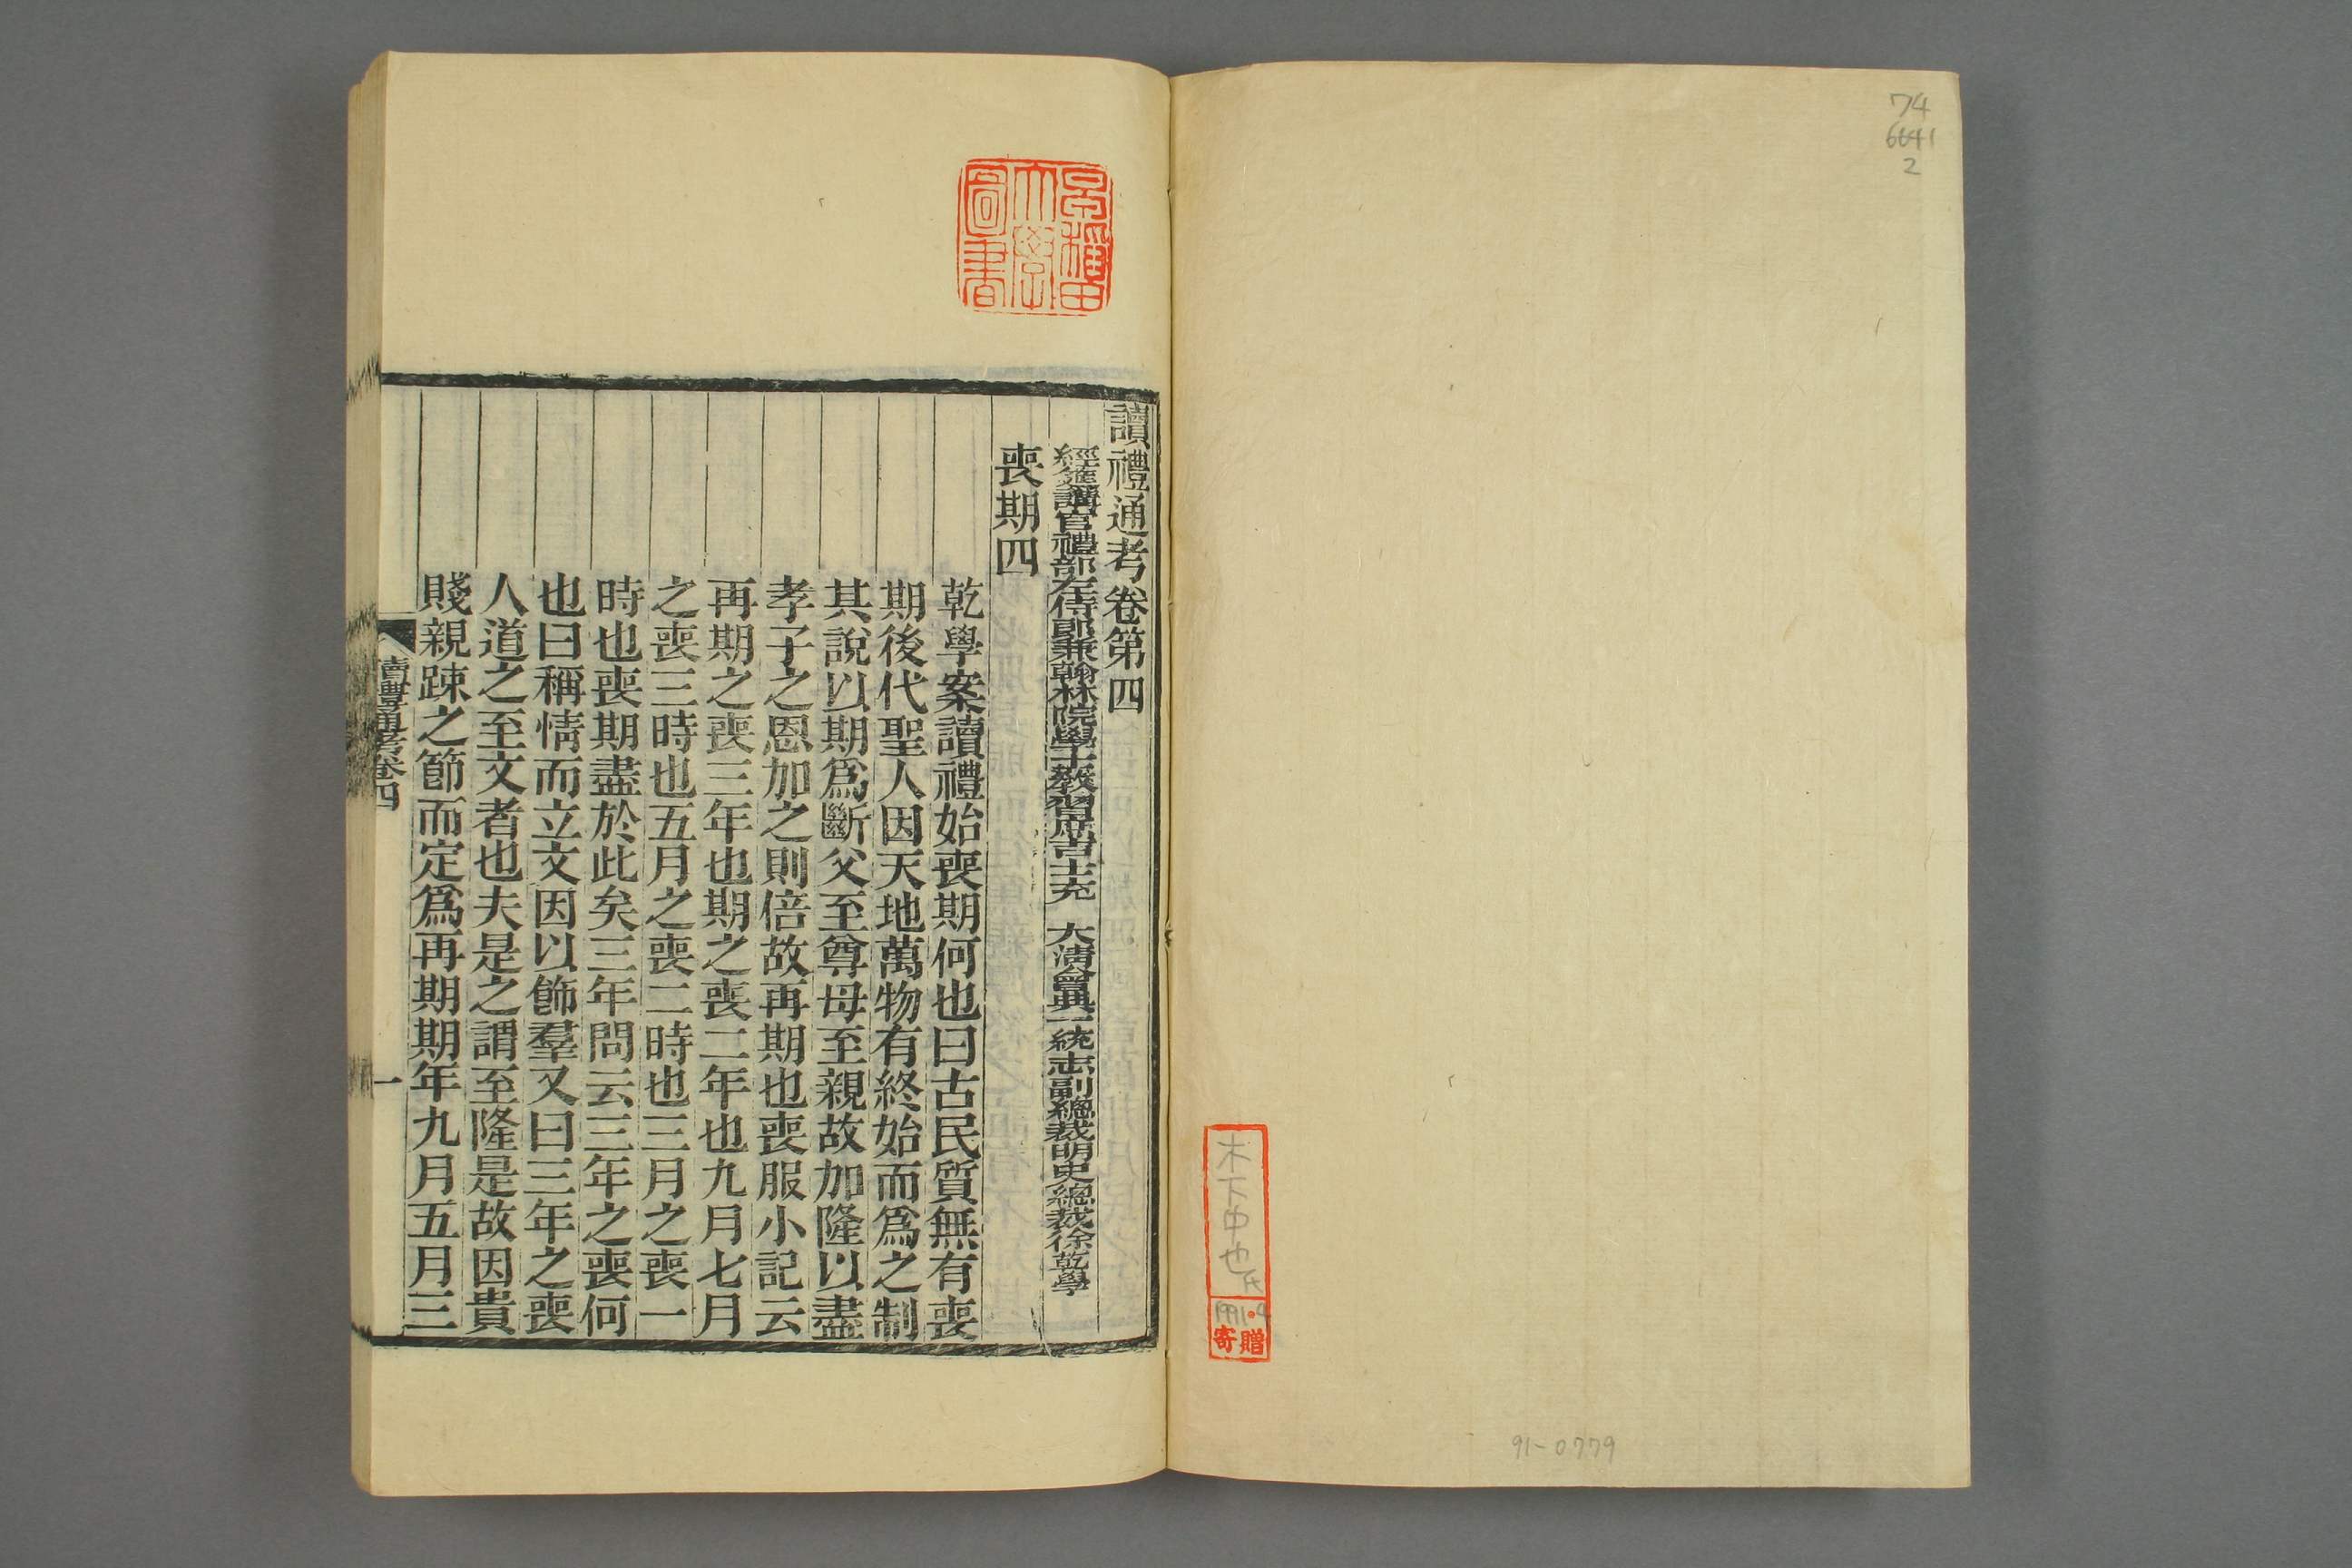 74
6641
2
木下中也氏
1991·9
寄贈
91-0779
早稲田
大學
圖書
讀禮通考卷第四
經筵講官禮部左侍郎兼翰林院學士教習庶吉士充　大清會典一統志副總裁明史總裁徐乾學
喪期四
乾學案讀禮始喪期何也曰古民質無有喪
期後代聖人因天地萬物有終始而爲之制
其說以期爲斷父至尊母至親故加隆以盡
孝子之恩加之則倍故再期也喪服小記云
再期之喪三年也期之喪二年也九月七月
之喪三時也五月之喪二時也三月之喪一
時也喪期盡於此矣三年問云三年之喪何
也曰稱情而立文因以飾羣又曰三年之喪
人道之至文者也夫是之謂至隆是故因貴
賤親踈之節而定爲再期期年九月五月三
讀禮通考卷四
一